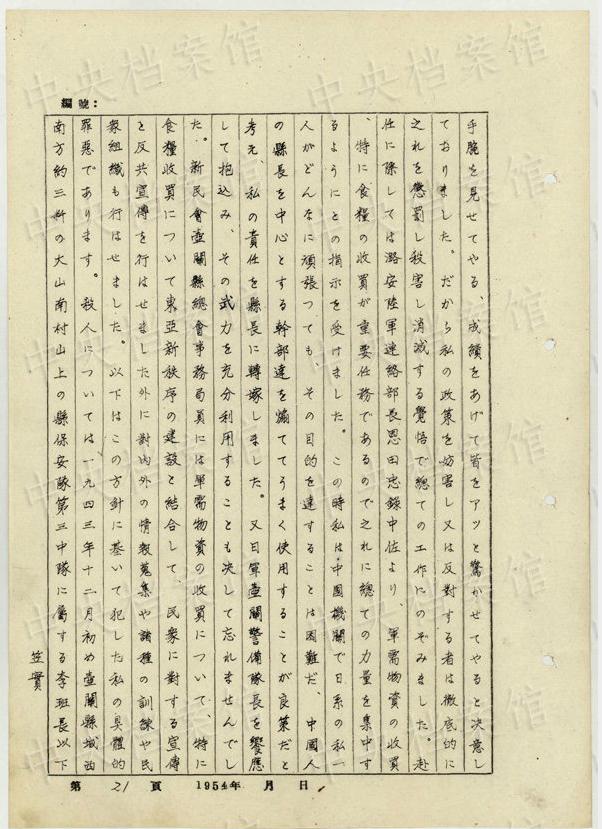 編號：
手腕を見せてやる、成績をあげて皆をアッと驚かせてやると决意し
ておりました。だから私の政策を妨害し又は反対する者は徹底的に
之れを懲罰し殺害し消滅する覺悟で總ての工作にのぞみました。赴
任に際しては潞安陸軍連絡部長恩田忠錄中佐より、軍需物資の收買
、特に食糧の收買が重要任務であるので之れに總ての力量を集中す
るようにとの指示を受けました。この時私は中國機關で日系の私一
人がどんなに頑張つても、その目的を達することは困難だ、中國人
の縣長を中心とする幹部達を煽ててうまく使用することが良策だと
考え、私の責任を縣長に轉嫁しました。又日軍壺關警備隊長を饗應
して抱込み、その武力を充分利用することも決して忘れませんでし
た。新民會壺關縣總會事務局員には軍需物資の收買について、特に
食糧收買について東亞新秩序の建設と結合して、民衆に對する宣傳
と反共宣傳を行はせました外に對内外の情報蒐集や諸種の訓練や民
衆組織も行はせました。以下はこの方針に基いて犯した私の具體的
罪惡であります。殺人については一九四三年十二月初め壺關縣城西
南方約三粁の大山南村山上の縣保安隊第三中隊に屬する李班長以下
笠實
第 21 頁 1954年 月 日
中央档案馆